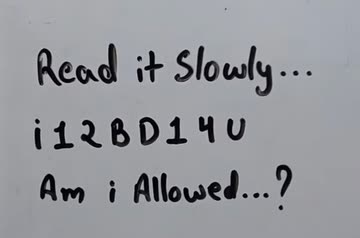 Read it Slowly...
i 1 2 B D 1 4 U
Am i Allowed...?